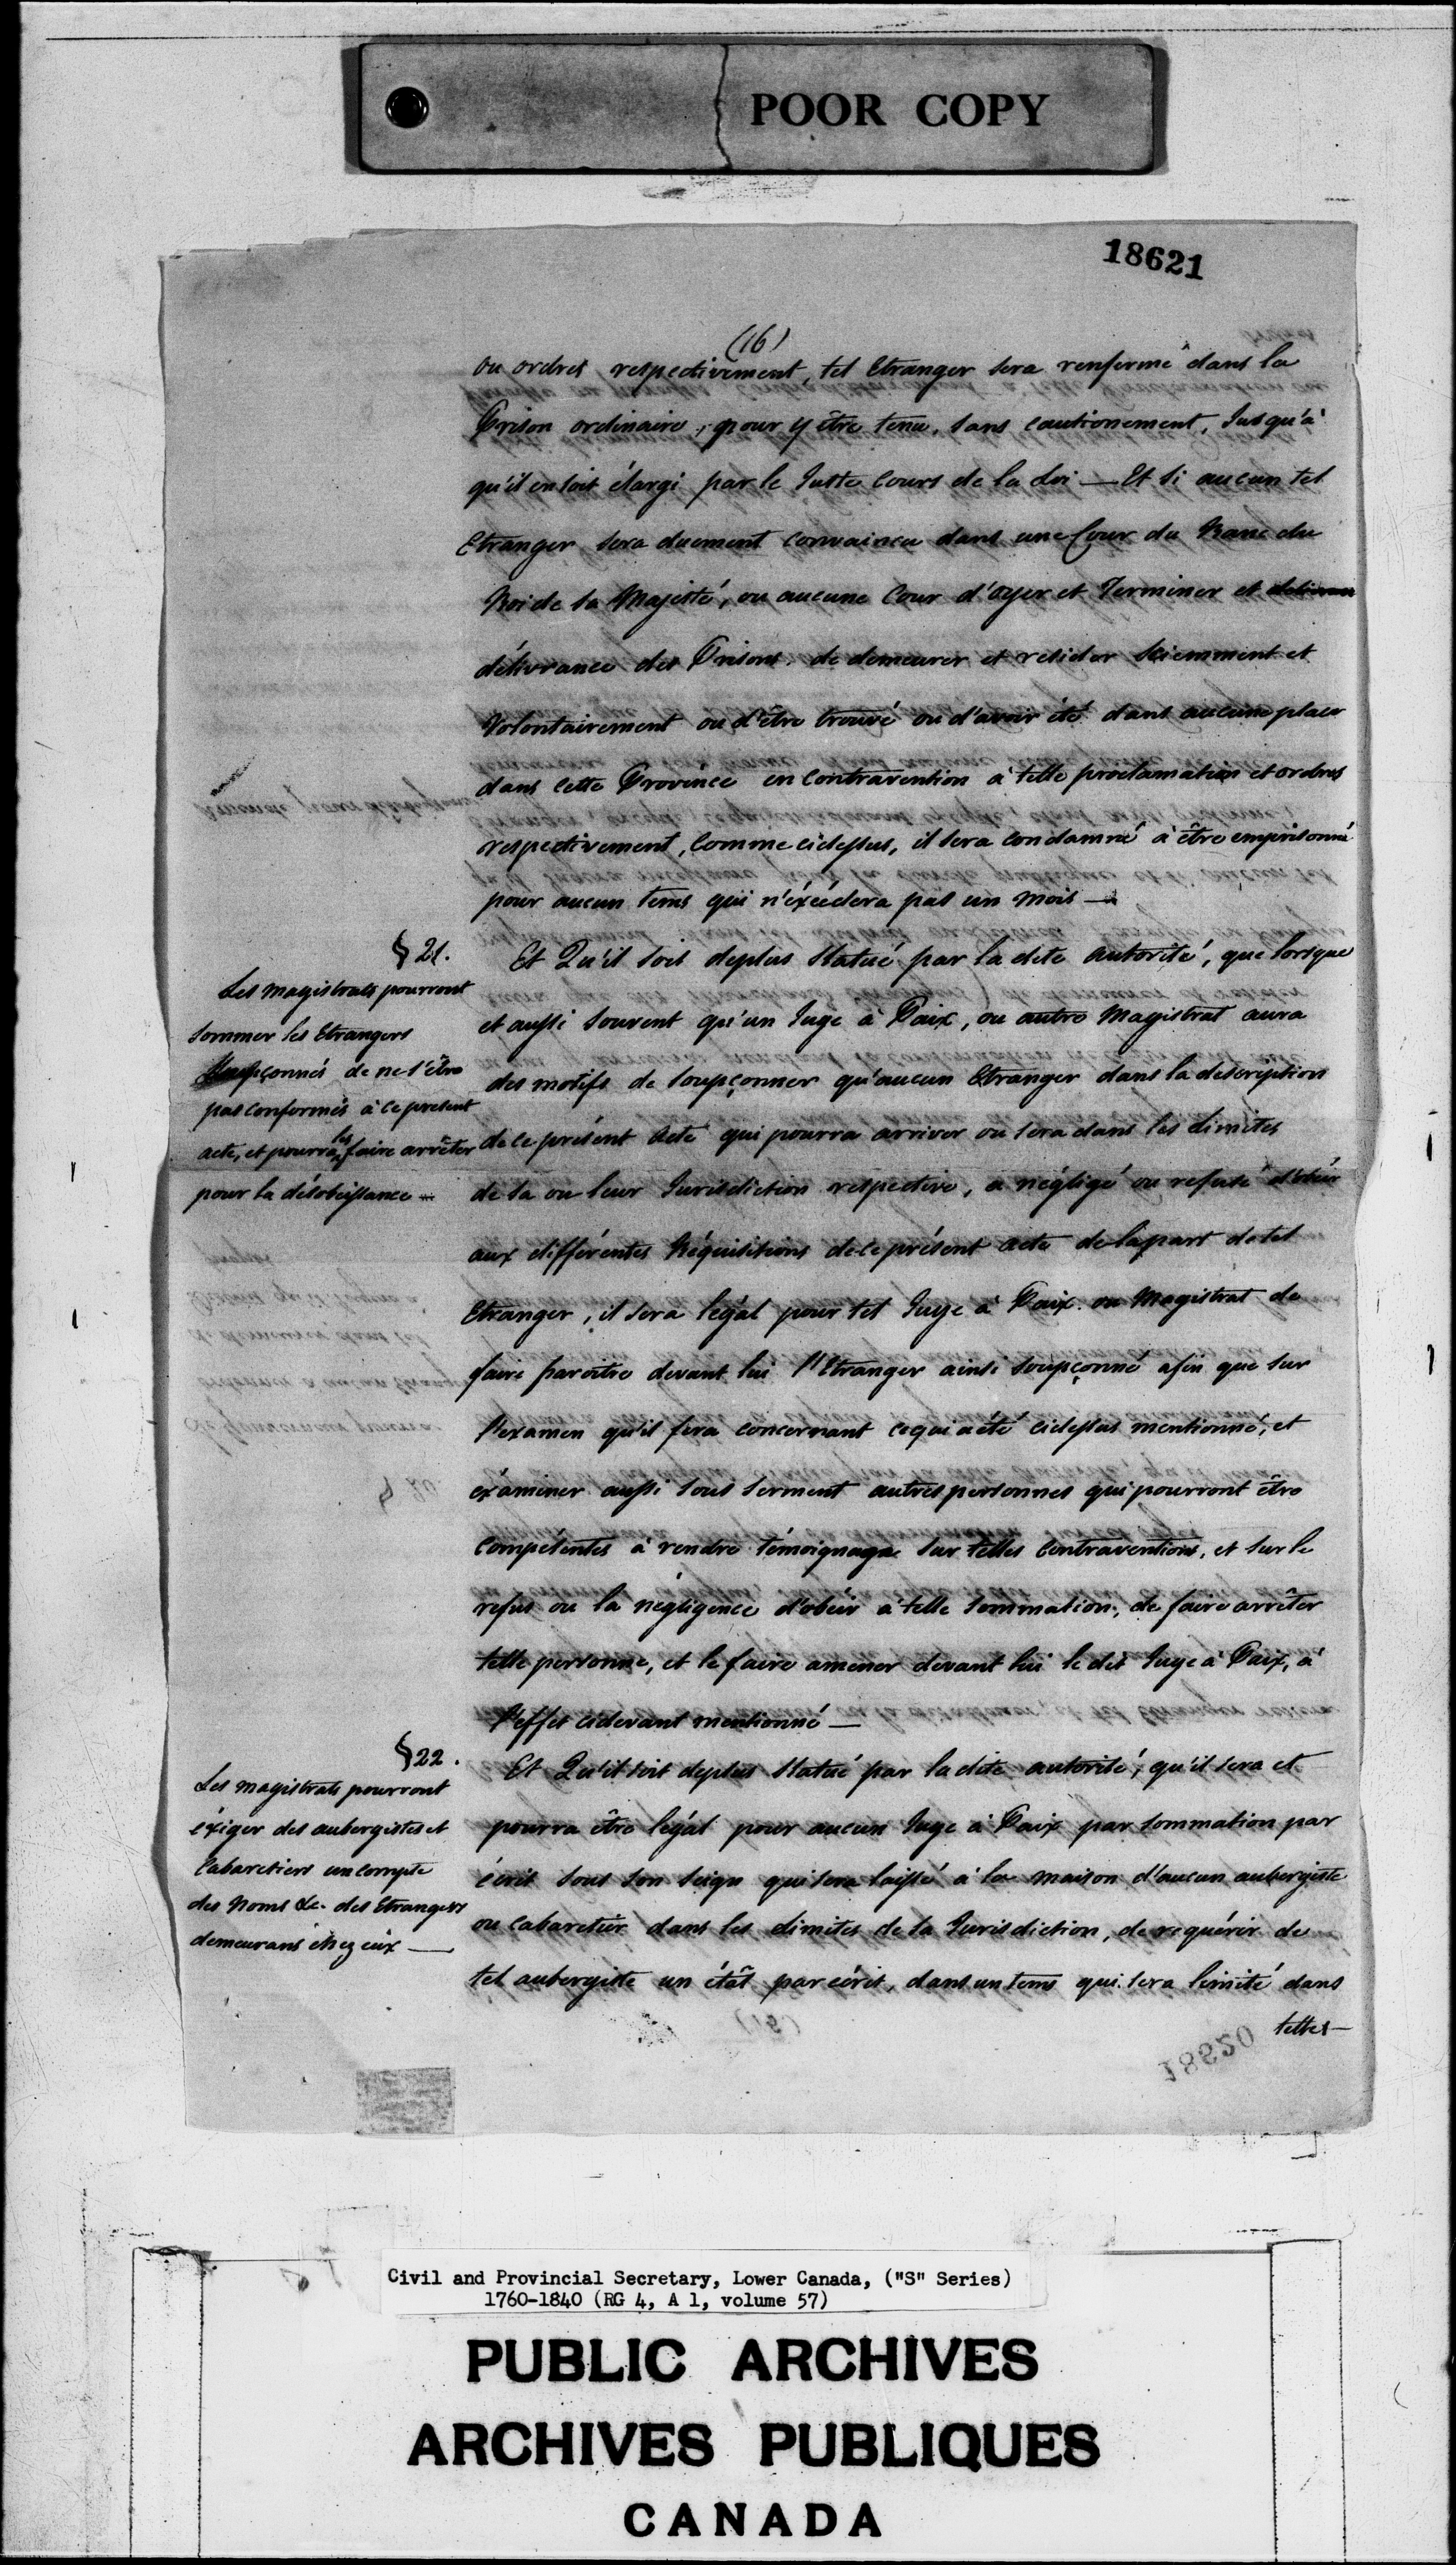 POOR COPY
18621
(16)
ou ordres respectivement, tel Etranger sera renfermé dans la
Prison ordinaire, pour y être tenu, sans cautionement, Jusqu'à
qu'il en soit élargi par le Juste Cours de la Loi — Et si aucun tel
Etranger sera duement convaincu dans une Cour du Banc du
Roi de sa Majesté, ou aucune Cour d'oyer et Terminer et
délivrance des Prisons de demeurer et resider sciemment et
Volontairement ou d'être trouvé ou d'avoir été dans aucune place
dans cette Province en contravention à telle proclamation et ordres
respectivement, Comme cidessus, il sera condamné à être emprisonné
pour aucun tems qui n'éxcédera pas un mois —
§ 21.
Les magistrats pourront
sommer les Etrangers
soupçonnés de ne s'être
pas conformés à ce present
acte, et pourra les faire arrêter
pour la désobéissance —
Et Qu'il soit deplus Statué par la dite autorité, que lorsque
et aussi souvent qu'un Juge à Paix, ou autre Magistrat aura
des motifs de soupçonner qu'aucun Etranger dans la description
de ce présent Acte qui pourra arriver ou sera dans les limites
de sa ou leur Jurisdiction respective, a négligé ou refusé d'obéir
aux différentes Réquisitions de ce présent acte de la part de tel
Etranger, il sera légal pour tel Juge à Paix ou Magistrat de
faire paroitre devant lui l'Etranger ainsi soupçonné afin que sur
l'examen qu'il fera concernant ce qui a été cidessus mentionné, et
éxaminer aussi sous serment autres personnes qui pourront être
Compétentes à rendre témoignage sur telles Contraventions, et sur le
refus ou la négligence d'obéir à telle Sommation, de faire arrêter
telle personne, et le faire amener devant lui le dit Juge à Paix, à
l'effet cidevant mentionné —
§ 22.
Les magistrats pourront
éxiger des aubergistes et
Cabaretiers un compte
des Noms &c. des Etrangers
demeurans chez eux —
Et Qu'il soit deplus Statué par la dite autorité, qu'il sera et
pourra être légal pour aucun Juge à Paix par sommation par
écrit sous son seign qui sera laissé à la maison d'aucun aubergiste
ou Cabaretier dans les limites de sa Jurisdiction, de requérir de
tel aubergiste un état par écrit, dans un tems qui sera limité dans
telles —
Civil and Provincial Secretary, Lower Canada, ("S" Series)
1760-1840 (RG 4, A 1, volume 57)
PUBLIC ARCHIVES
ARCHIVES PUBLIQUES
CANADA